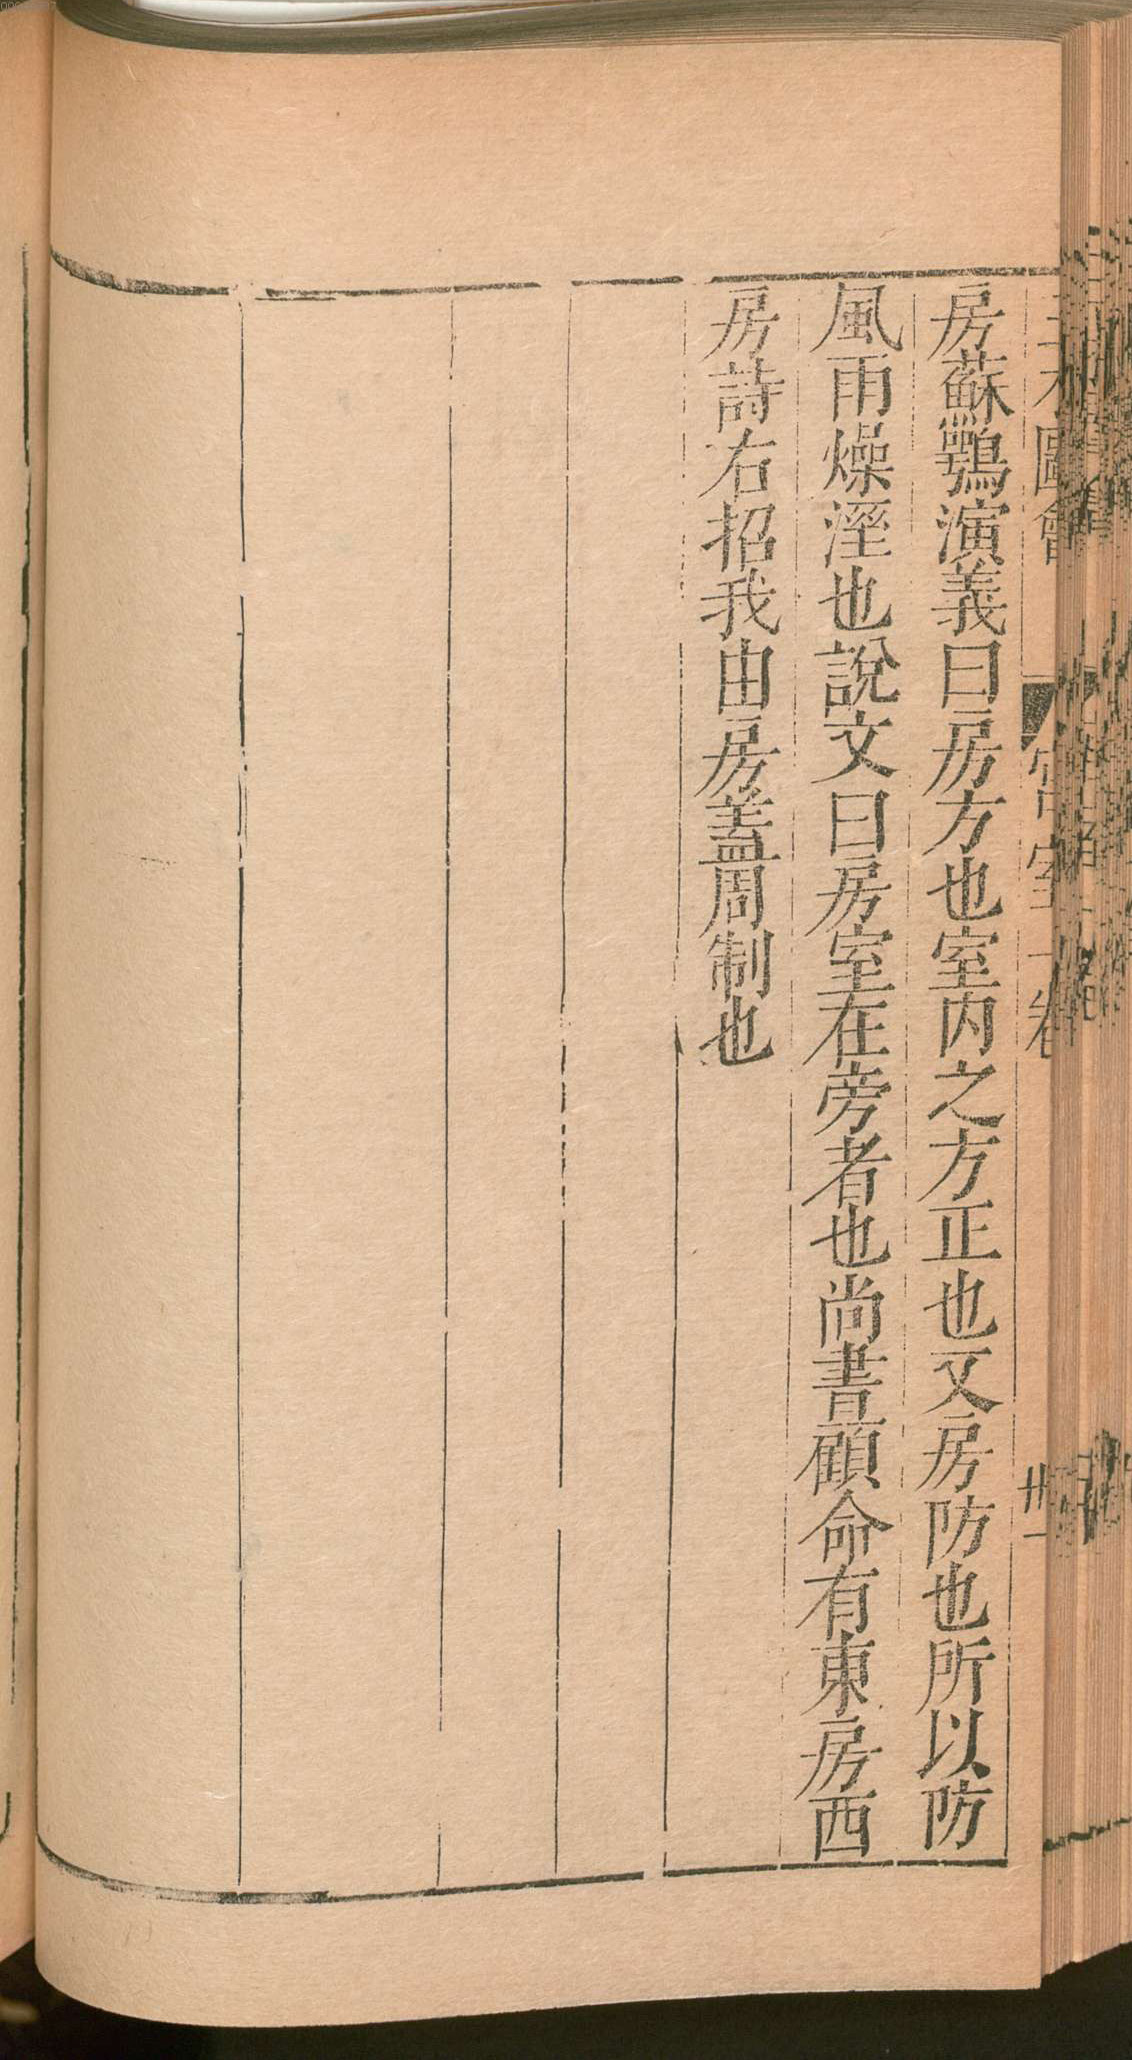 圖會 宮室一卷 卅一
房蘇鶚演義曰房方也室内之方正也又房防也所以防
風雨燥溼也說文曰房室在旁者也尚書顧命有東房西
房詩右招我由房蓋周制也